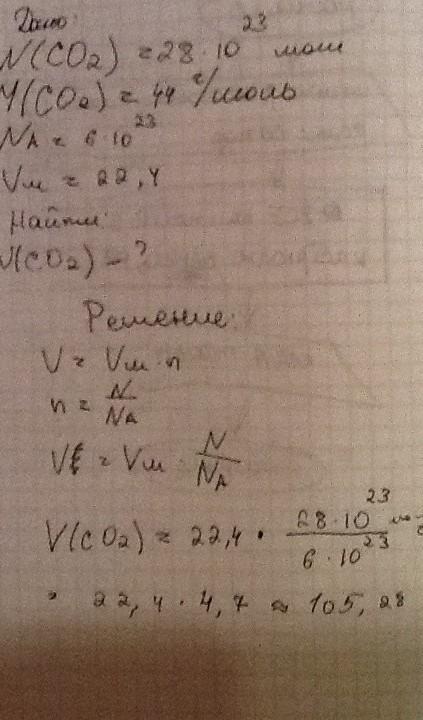 Дано:
N(CO2) = 28 · 10^23 мол
M(CO2) = 44 г/моль
NA = 6 · 10^23
Vм = 22,4
Найти:
V(CO2) - ?
Решение:
V = Vм · n
n = N/NA
V = Vм · N/NA
V(CO2) = 22,4 · 28 · 10^23 / 6 · 10^23
= 22,4 · 4,7 = 105,28